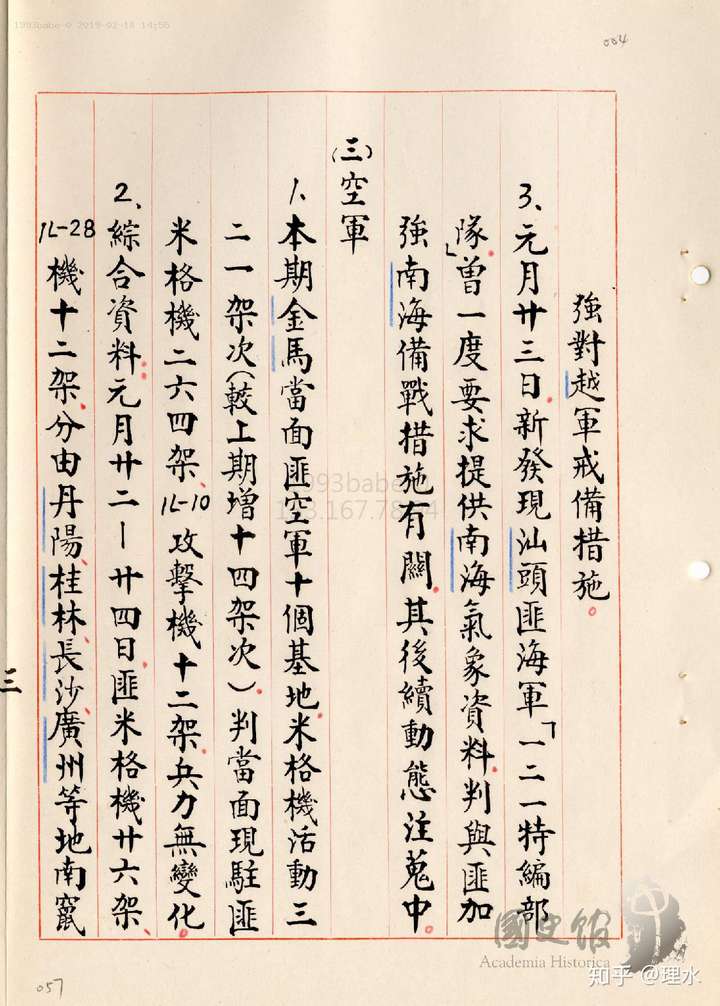 1993babe © 2019-02-18 14:55
004
強對越軍戒備措施。
3、元月廿三日,新發現汕頭匪海軍「一二一特編部
隊」曾一度要求提供南海氣象資料,判與匪加
強南海備戰措施有關,其後續動態注蒐中。
(三)空軍
1、本期金馬當面匪空軍十個基地,米格機活動三
二一架次(較上期增十四架次)。判當面現駐匪
米格機二六四架、IL-10攻擊機十二架,兵力無變化。
2、綜合資料:元月廿二-廿四日,匪米格機廿六架、
IL-28機十二架,分由丹陽、桂林、長沙、廣州等地南竄
三
057
國史館
Academia Historica
知乎 @理水